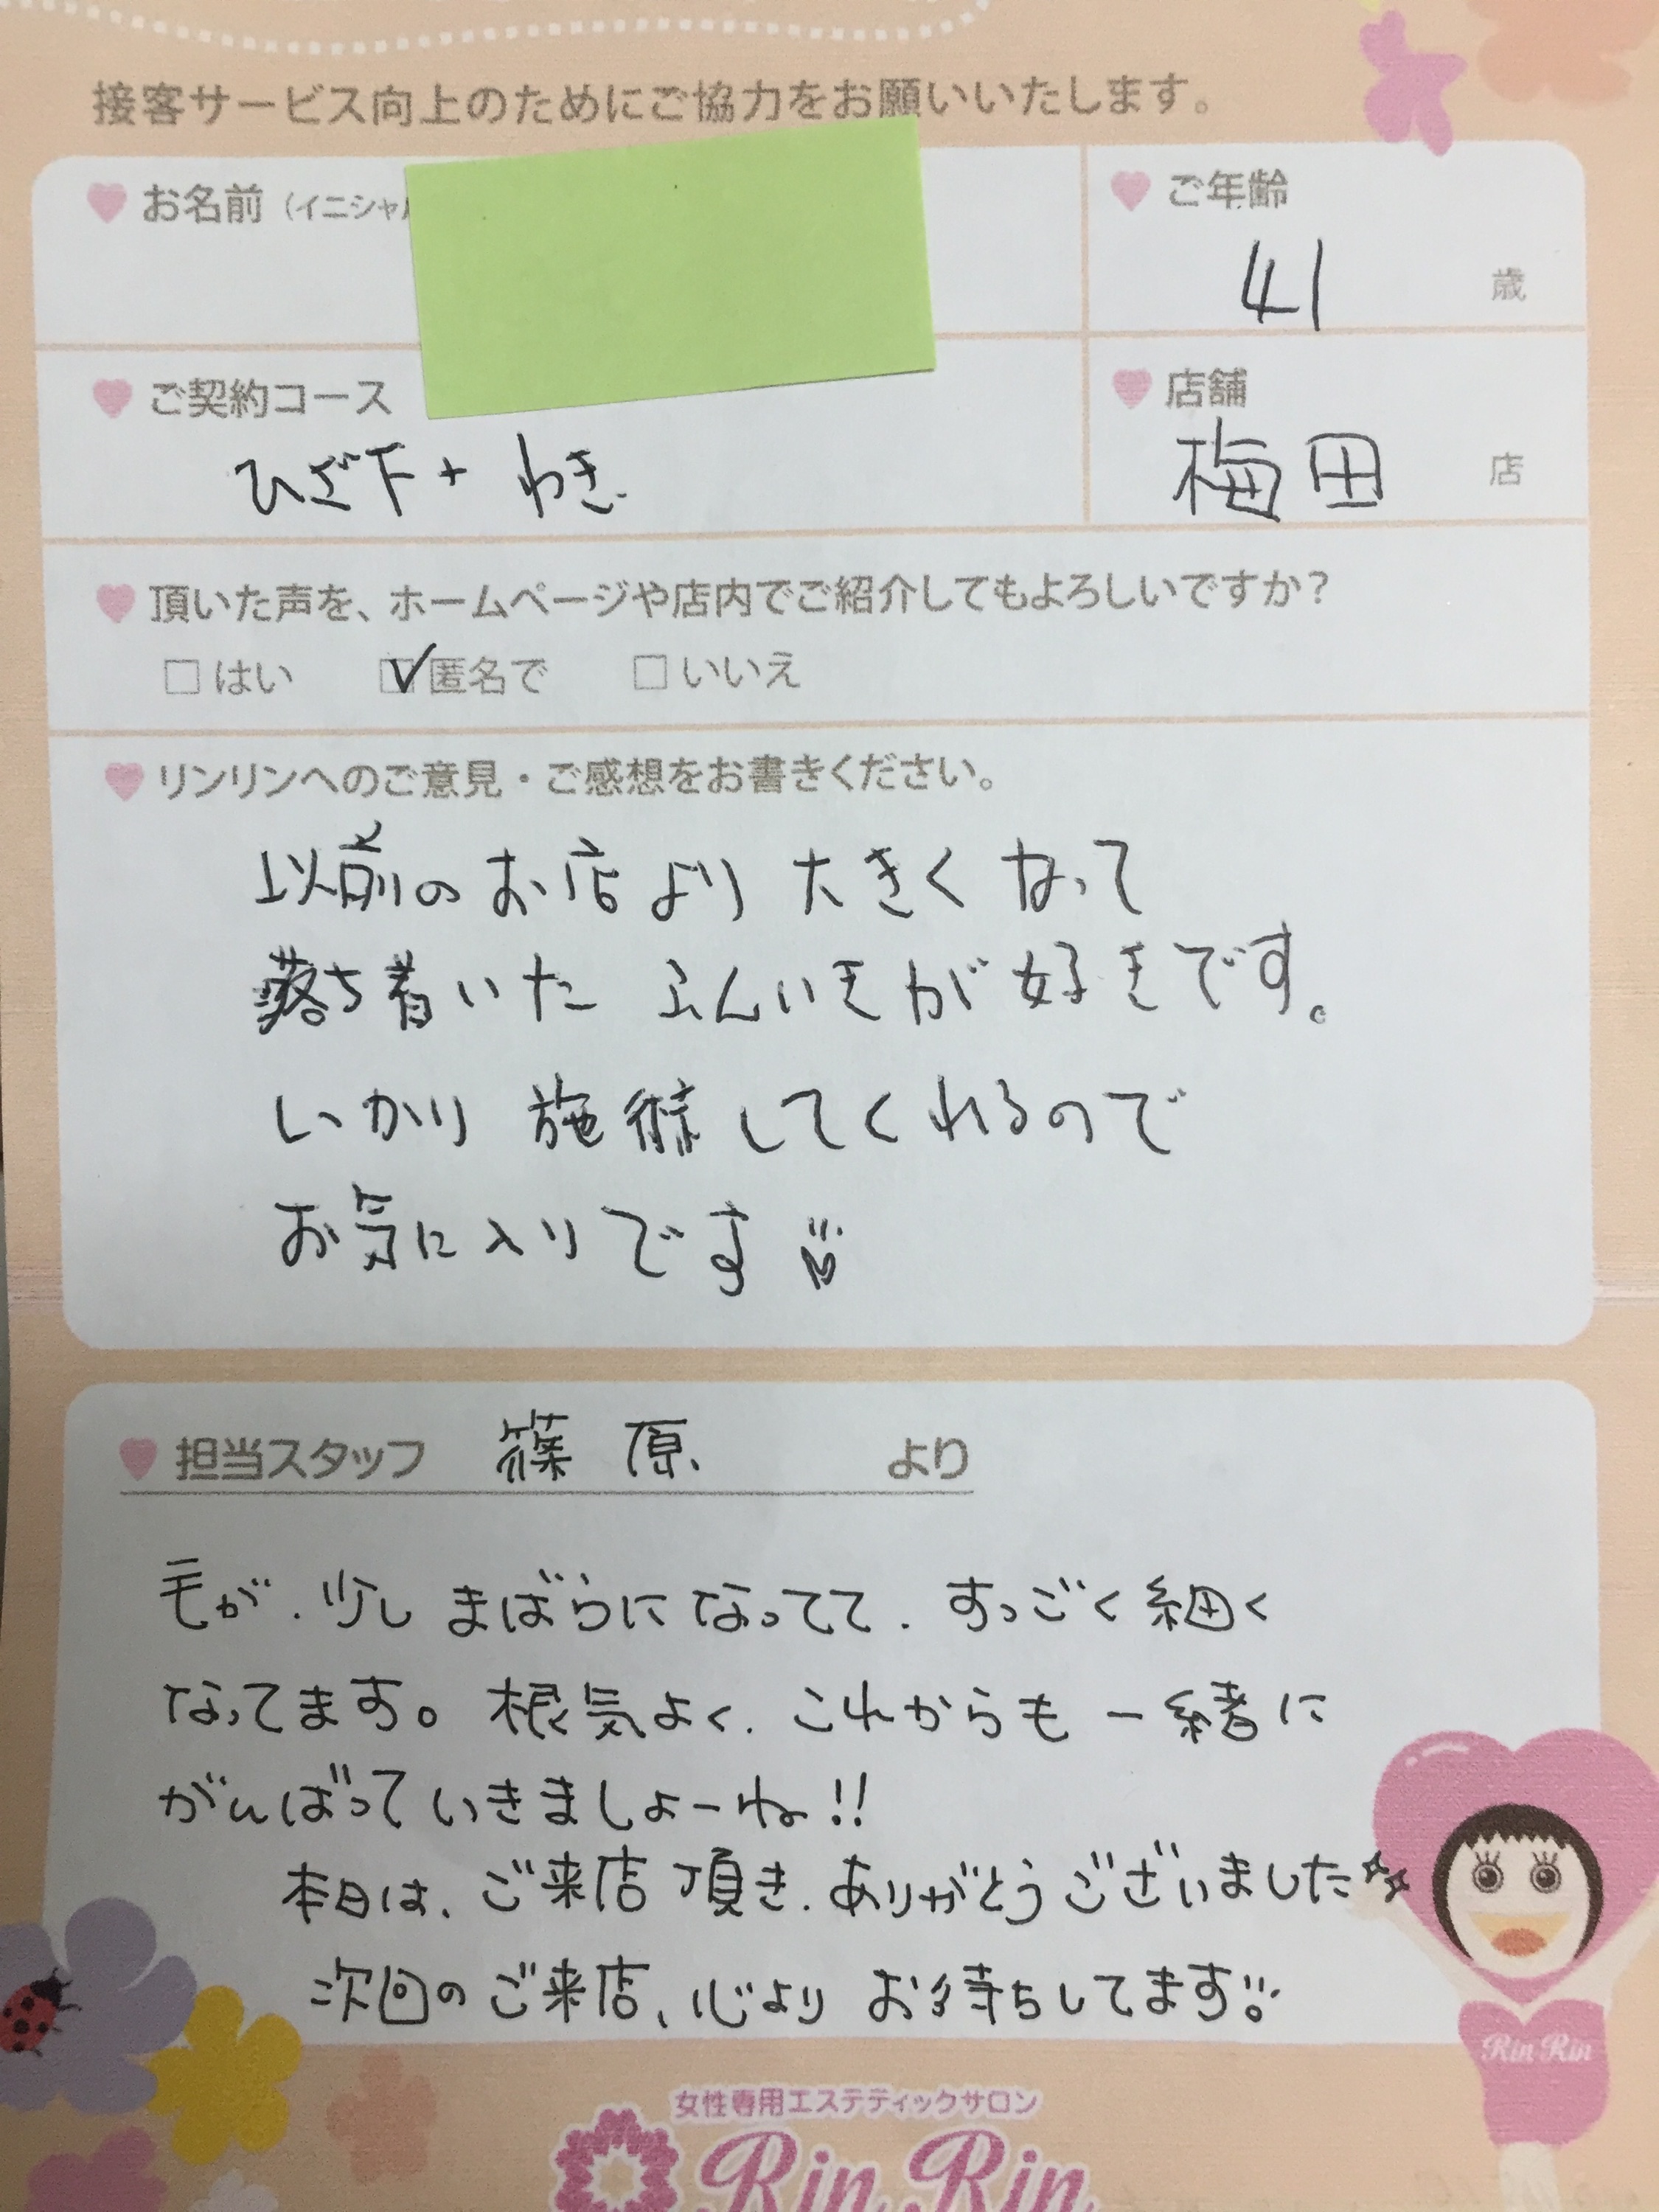 接客サービス向上のためにご協力をお願いいたします。
お名前（イニシャル
ご年齢
41 歳
ご契約コース
ひざ下+わき
店舗
梅田 店
頂いた声を、ホームページや店内でご紹介してもよろしいですか？
□はい ☑匿名で □いいえ
リンリンへのご意見・ご感想をお書きください。
以前のお店より大きくなって
落ち着いたふんいきが好きです。
しっかり施術してくれるので
お気に入りです
担当スタッフ 篠原 より
毛が、少しまばらになってて、すっごく細く
なってます。根気よく、これからも一緒に
がんばっていきましょーね!!
本日は、ご来店頂き、ありがとうございました☆
次回のご来店、心よりお待ちしてます
Rin Rin
女性専用エステティックサロン
Rin Rin